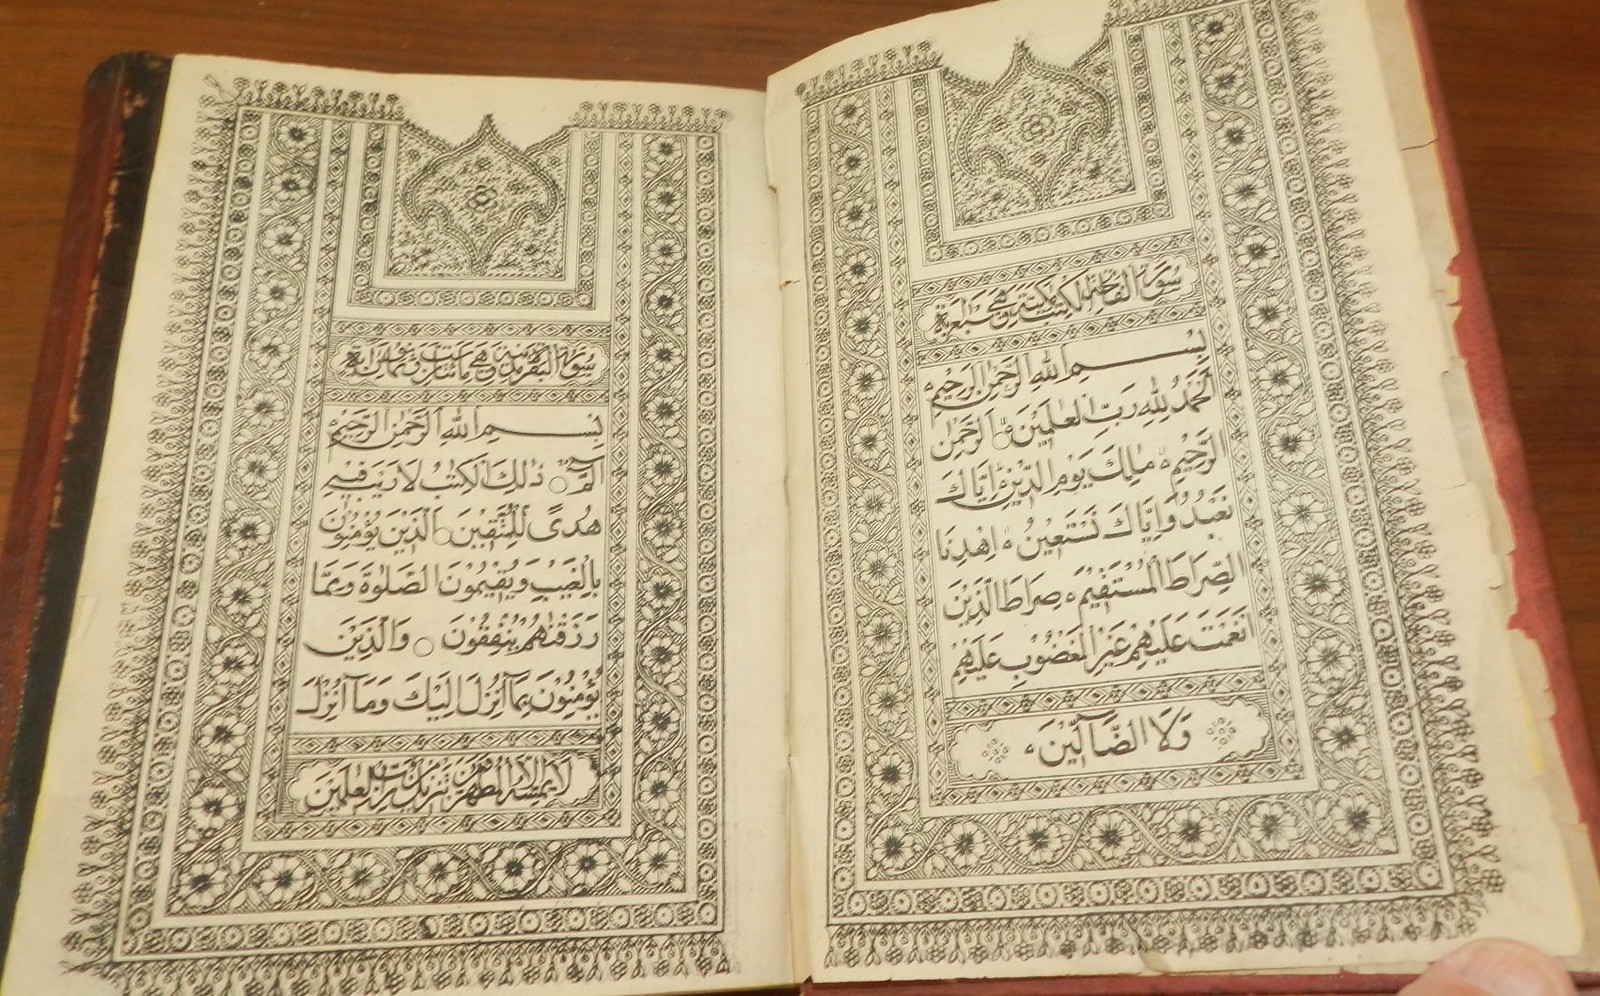 سورة الفاتحة الكتب مكية وهي سبع اية
بِسْمِ اللهِ الرَّحْمٰنِ الرَّحِيْمِ
اَلْحَمْدُ لِلّٰهِ رَبِّ الْعٰلَمِيْنَ ۝ الرَّحْمٰنِ
الرَّحِيْمِ ۝ مٰلِكِ يَوْمِ الدِّيْنِ ۝ اِيَّاكَ
نَعْبُدُ وَاِيَّاكَ نَسْتَعِيْنُ ۝ اِهْدِنَا
الصِّرَاطَ الْمُسْتَقِيْمَ ۝ صِرَاطَ الَّذِيْنَ
اَنْعَمْتَ عَلَيْهِمْ غَيْرِ الْمَغْضُوْبِ عَلَيْهِمْ
وَلَا الضَّآلِّيْنَ ۝
سورة البقرة مدنية وهي مائتان وست وثمانون اية
بِسْمِ اللهِ الرَّحْمٰنِ الرَّحِيْمِ
الٓمّٓ ۝ ذٰلِكَ الْكِتٰبُ لَا رَيْبَ فِيْهِ
هُدًى لِّلْمُتَّقِيْنَ ۝ الَّذِيْنَ يُؤْمِنُوْنَ
بِالْغَيْبِ وَيُقِيْمُوْنَ الصَّلٰوةَ وَمِمَّا
رَزَقْنٰهُمْ يُنْفِقُوْنَ ۝ وَالَّذِيْنَ
يُؤْمِنُوْنَ بِمَآ اُنْزِلَ اِلَيْكَ وَمَآ اُنْزِلَ
لا يمسه الا المطهرون تنزيل من رب العلمين